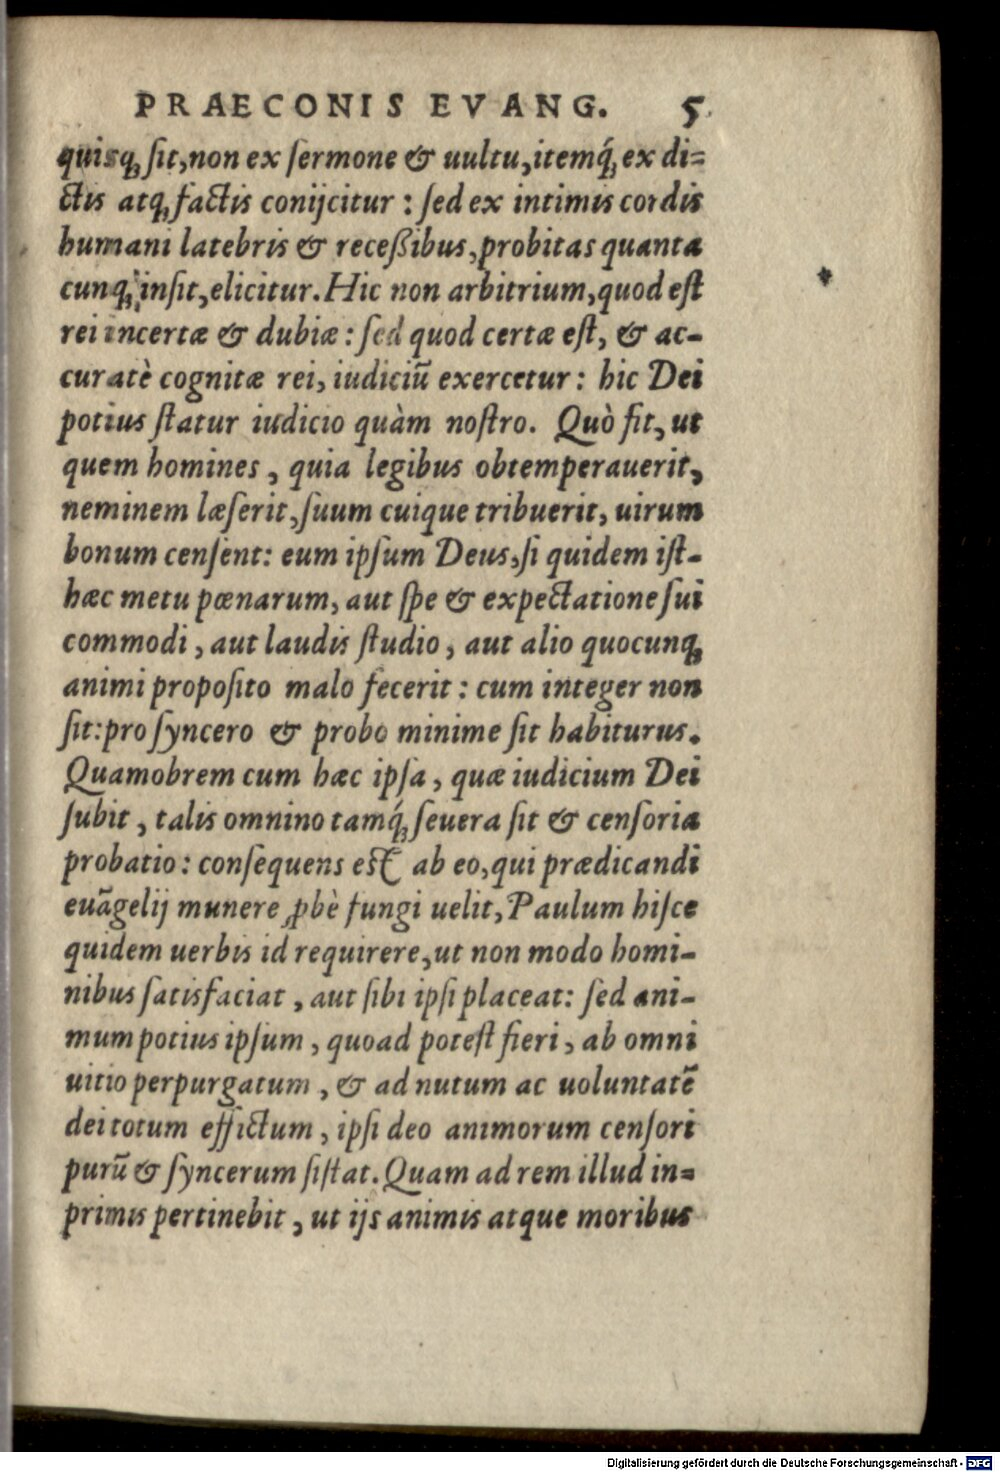 PRAECONIS EVANG. 5
quisq; sit, non ex sermone & uultu, itemq́; ex di=
ctis atq; factis conijcitur : sed ex intimis cordis
humani latebris & receßibus, probitas quanta
cunq; insit, elicitur. Hic non arbitrium, quod est
rei incertæ & dubiæ : sed quod certæ est, & ac-
curatè cognitæ rei, iudiciũ exercetur : hic Dei
potius statur iudicio quàm nostro. Quò fit, ut
quem homines, quia legibus obtemperauerit,
neminem læserit, suum cuique tribuerit, uirum
bonum censent: eum ipsum Deus, si quidem ist-
hæc metu pœnarum, aut spe & expectatione sui
commodi, aut laudis studio, aut alio quocunq;
animi proposito malo fecerit : cum integer non
sit: pro syncero & probo minime sit habiturus.
Quamobrem cum hæc ipsa, quæ iudicium Dei
subit, talis omnino tamq́; seuera sit & censoria
probatio : consequens est ab eo, qui prædicandi
euãgelij munere ꝓbè fungi uelit, Paulum hisce
quidem uerbis id requirere, ut non modo homi-
nibus satisfaciat, aut sibi ipsi placeat: sed ani-
mum potius ipsum, quoad potest fieri, ab omni
uitio perpurgatum, & ad nutum ac uoluntatẽ
dei totum effictum, ipsi deo animorum censori
purũ & syncerum sistat. Quam ad rem illud in=
primis pertinebit, ut ijs animis atque moribus
Digitalisierung gefördert durch die Deutsche Forschungsgemeinschaft - DFG